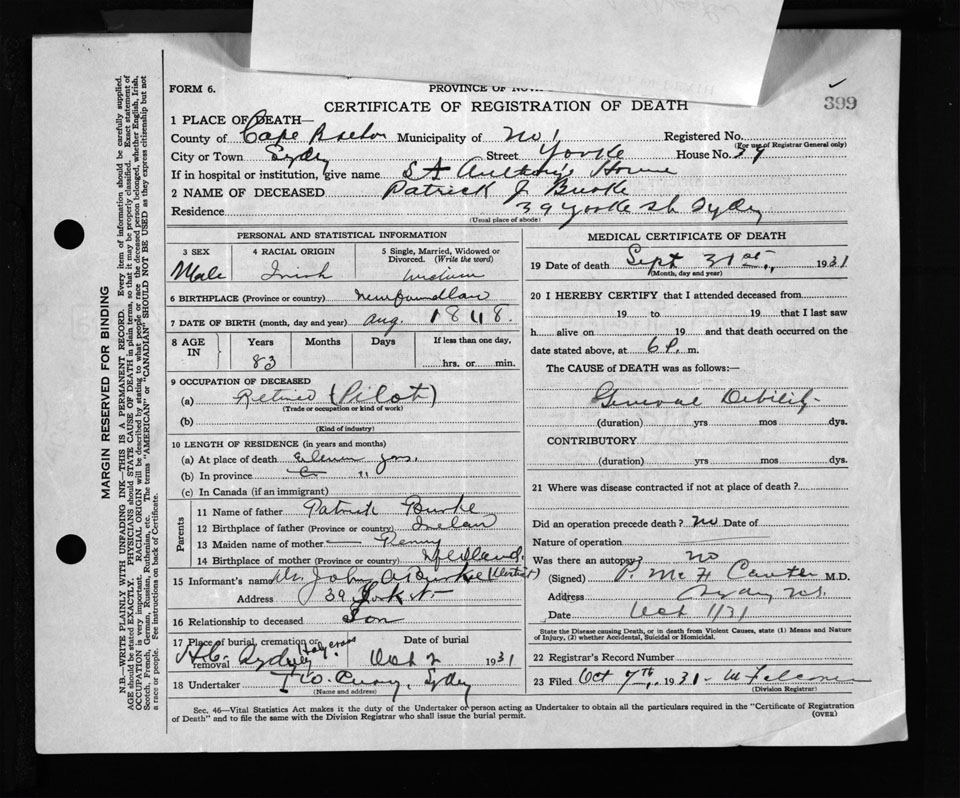 FORM 6.
PROVINCE OF NOV
399
CERTIFICATE OF REGISTRATION OF DEATH
1 PLACE OF DEATH—
County of Cape Breton Municipality of No. 1 Registered No.
(For use of Registrar General only)
City or Town Sydney Street Yorke House No. 39
If in hospital or institution, give name St Anthony's Home
2 NAME OF DECEASED Patrick J Burke
Residence 39 Yorke St Sydney
(Usual place of abode)
PERSONAL AND STATISTICAL INFORMATION
3 SEX 4 RACIAL ORIGIN 5 Single, Married, Widowed or Divorced. (Write the word)
Male Irish
6 BIRTHPLACE (Province or country) Newfoundlan
7 DATE OF BIRTH (month, day and year) Aug. 1848.
8 AGE IN Years Months Days If less than one day,
83 hrs. or min.
9 OCCUPATION OF DECEASED
(a) Retired (Pilot)
(Trade or occupation or kind of work)
(b)
(Kind of industry)
10 LENGTH OF RESIDENCE (in years and months)
(a) At place of death Eleven yrs.
(b) In province "
(c) In Canada (if an immigrant)
Parents
11 Name of father Patrick Burke
12 Birthplace of father (Province or country) Irelan
13 Maiden name of mother — Penny
14 Birthplace of mother (Province or country) Nfldland.
15 Informant's name Dr. John A Burke (Dentist)
Address 39 York St
16 Relationship to deceased Son
17 Place of burial, cremation or removal Holy Cross Sydney Date of burial Oct 2 1931
18 Undertaker T. O. Curry, Sydney
(Name and address)
MEDICAL CERTIFICATE OF DEATH
19 Date of death Sept 31st, 1931
(Month, day and year)
20 I HEREBY CERTIFY that I attended deceased from
19 to 19 that I last saw
h alive on 19 and that death occurred on
date stated above, at 6 P. m.
The CAUSE of DEATH was as follows:—
General Debility
(duration) yrs mos dys.
CONTRIBUTORY
(duration) yrs. mos. dys.
21 Where was disease contracted if not at place of death?
Did an operation precede death? no Date of
Nature of operation
Was there an autopsy? no
(Signed) P. McF Carter M.D.
Address Sydney N.S.
Date Oct 1/31
State the Disease causing Death, or in death from Violent Causes, state (1) Means and Nature of Injury, (2) whether Accidental, Suicidal or Homicidal.
22 Registrar's Record Number
23 Filed Oct 7th, 1931 - W Falconer
(Division Registrar)
Sec. 46—Vital Statistics Act makes it the duty of the Undertaker or person acting as Undertaker to obtain all the particulars required in the "Certificate of Registration
of Death" and to file the same with the Division Registrar who shall issue the burial permit. (OVER)
MARGIN RESERVED FOR BINDING
N.B.—WRITE PLAINLY WITH UNFADING INK—THIS IS A PERMANENT RECORD. Every item of information should be carefully supplied.
AGE should be stated EXACTLY. PHYSICIANS should STATE CAUSE OF DEATH in plain terms, so that it may be properly classified. Exact statement of
OCCUPATION is very important. RACIAL ORIGIN will be described by stating to what people or race the deceased person belonged, whether English, Irish,
Scotch, French, German, Russian, Ruthenian, etc. The terms "AMERICAN" or "CANADIAN" SHOULD NOT BE USED as they express citizenship but not
a race or people. See instructions on back of Certificate.